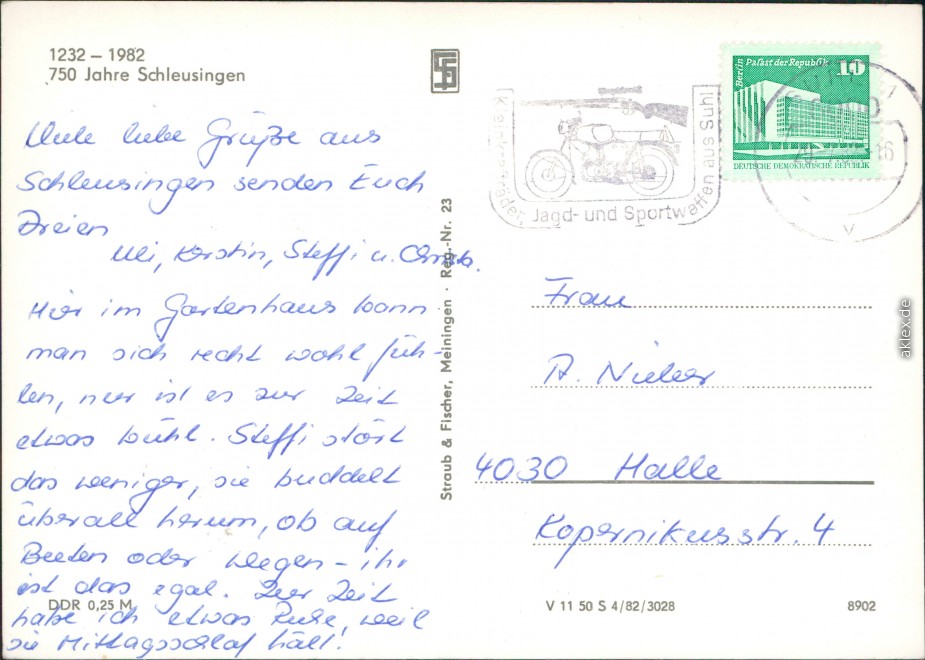 1232 – 1982
750 Jahre Schleusingen
Viele liebe Grüße aus
Schleusingen senden Euch
Dreien
Uli, Kerstin, Steffi u.
Hier im Gartenhaus kann
man sich recht wohl füh-
len, nur ist es zur Zeit
etwas kühl. Steffi stört
das weniger, sie buddelt
überall herum, ob auf
Beeten oder Wegen – ihr
ist das egal. Zur Zeit
habe ich etwas Ruhe, weil
sie Mittagsschlaf hält!
DDR 0,25 M
Straub & Fischer, Meiningen · Reg.-Nr. 23
Kleinkrafträder, Jagd- und Sportwaffen aus Suhl
Berlin Palast der Republik
10
DEUTSCHE DEMOKRATISCHE REPUBLIK
Frau
A.
4030 Halle
Kopernikusstr. 4
V 11 50 S 4/82/3028
8902
akpool.de